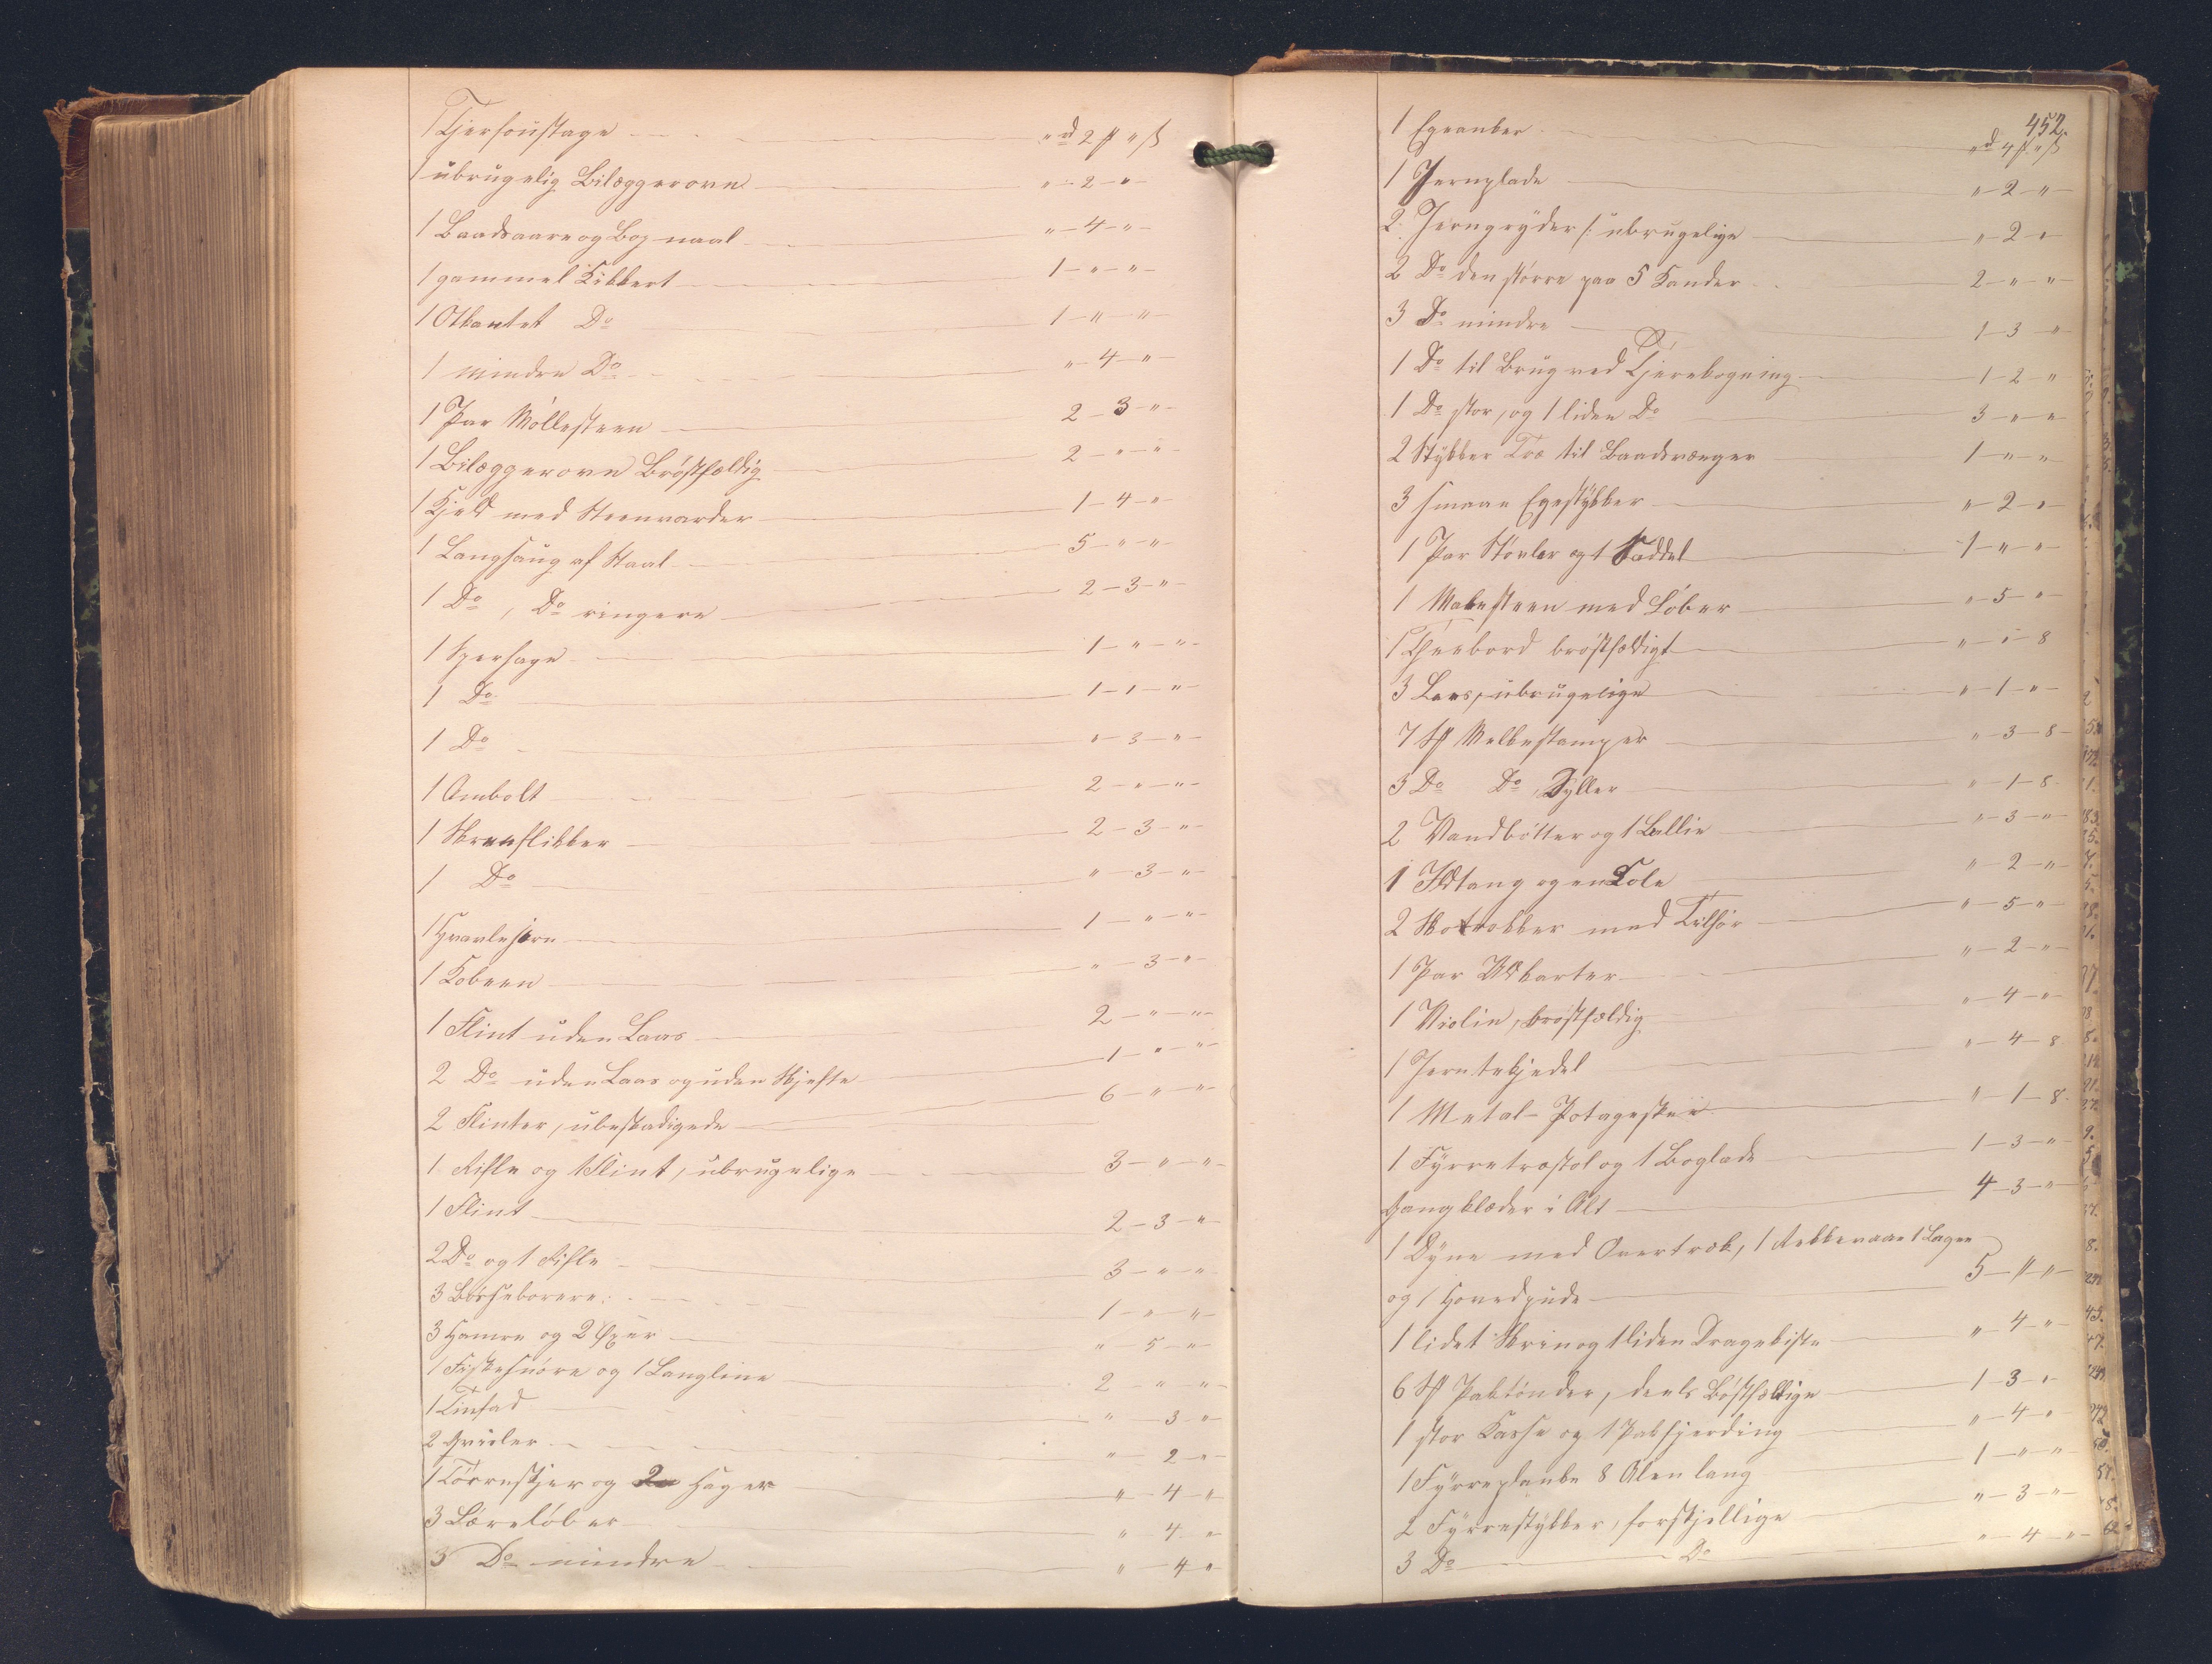 1 Tjersoustage " rd 2 ₰ " ß
1 ubrugelig Bilæggerovn " - 2 - "
1 Baadsaare og Bog naal " - 4 - "
1 gammel Kikkert 1 - " - "
1 Otkantet Do 1 - " - "
1 mindre Do " - 4 - "
1 Par Møllesteen 2 - 3 - "
1 Bilæggerovn Brøstfældig 2 - " - "
1 Kjeld med Steenvarder 1 - 4 - "
1 Langsaug af Staal 5 - " - "
1 Do, Do ringere 2 - 3 - "
1 Spersage 1 - " - "
1 Do 1 - 1 - "
1 Do " - 3 - "
1 Ambolt 2 - " - "
1 Skrustikker 2 - 3 - "
1 Do " - 3 - "
1 Hvarlejern 1 - " - "
1 Kobeen " - 3 - "
1 Flint uden Laas 2 - " - "
2 Do uden Laas og uden Skjefte 1 - " - "
2 Flinter, ubeskadigede 6 - " - "
1 Rifle og 1 Flint, ubrugelige 3 - " - "
1 Flint 2 - 3 - "
2 Do og 1 Rifle 3 - " - "
3 Børseborere 1 - " - "
3 Hamre og 2 Øxer " - 5 - "
1 Fiskesnøre og 1 Langline 2 - " - "
1 Tinfad " - 3 - "
2 Hvirler " - 2 - "
1 Tørreskjer og 2 Hager " - 4 - "
3 Læreløber " - 4 - "
3 Do mindre " - 4 - "
452.
1 Egeanker " rd 4 ₰ " ß
1 Jernplade " - 2 - "
2 Jerngryder /: ubrugelige " - 2 - "
2 Do den større paa 5 Kander 2 - " - "
3 Do mindre 1 - 3 - "
1 Do til Brug ved Tjerekogning 1 - 2 - "
1 Do stor, og 1 liden Do 3 - " - "
2 Stykker Træ til Baadsvænger 1 - " - "
3 smaae Egestykker " - 2 - "
1 Par Støvler og 1 Saddel 1 - " - "
1 Malesteen med Løber " - 5 - "
1 Theebord brøstfældigt " - " - 8
3 Laas, ubrugelige " - 1 - "
7 St Melkestamper " - 3 - 8
3 Do Do, Syller " - 1 - 8
2 Vandbøtter og 1 Ballie " - 3 - "
1 Ildtang og en Kole " - 2 - "
2 Skotrokker med Tilhør " - 5 - "
1 Par Uldkarter " - 2 - "
1 Violin, brøstfældig " - 4 - "
1 Jerntekjedel " - 4 - 8
1 Metal- Potageskee " - 1 - 8
1 Fyrretræstol og 1 Boglade 1 - 3 - "
Gangklæder i Alt 4 - 3 - "
1 Dyne med Overtræk, 1 Rekkevaar 1 Lagen
og 1 Hovedpude 5 - " - "
1 lidet Skrin og 1 liden Dragekiste " - 4 - "
6 St Paktønder, deels Bøstfældige 1 - 3 - "
1 stor Kasse og 1 Pakfjerding " - 4 - "
1 Fyrreplanke 8 Alen lang 1 - " - "
2 Fyrrestykker, forskjellige " - 3 - "
3 Do Do " - 4 - "